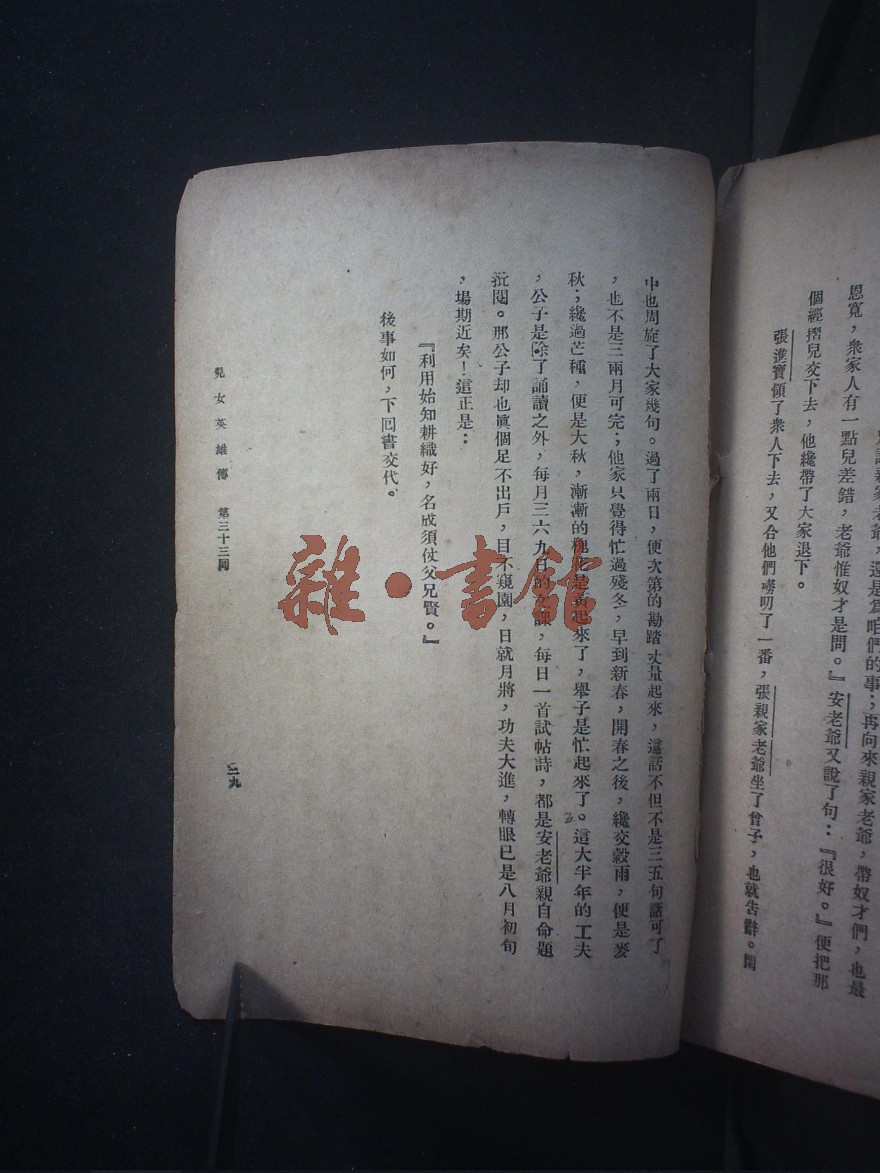 恩寬，衆家人有一點兒差錯，老爺惟奴才是問。』安老爺又說了句：『很好。』便把那
個經摺兒交下去，他纔帶了大家退下。
張進寶領了衆人下去，又合他們嘮叨了一番，張親家老爺坐了曾子，也就告辭。閒
中也周旋了大家幾句。過了兩日，便次第的勘踏丈量起來，這話不但不是三五句話可了
，也不是三兩月可完；他家只覺得忙過殘冬，早到新春，開春之後，纔交穀雨，便是麥
秋；纔過芒種，便是大秋，漸漸的槐花是黃起來了，舉子是忙起來了。這大半年的工夫
，公子是除了誦讀之外，每月三六九日的文課，每日一首試帖詩，都是安老爺親自命題
批閱。那公子却也眞個足不出戶，目不窺園，日就月將，功夫大進，轉眼已是八月初旬
，場期近矣！這正是：
『利用始知耕織好，名成須仗父兄賢。』
後事如何，下囘書交代。
兒女英雄傳 第三十三囘
二九
雜·書館